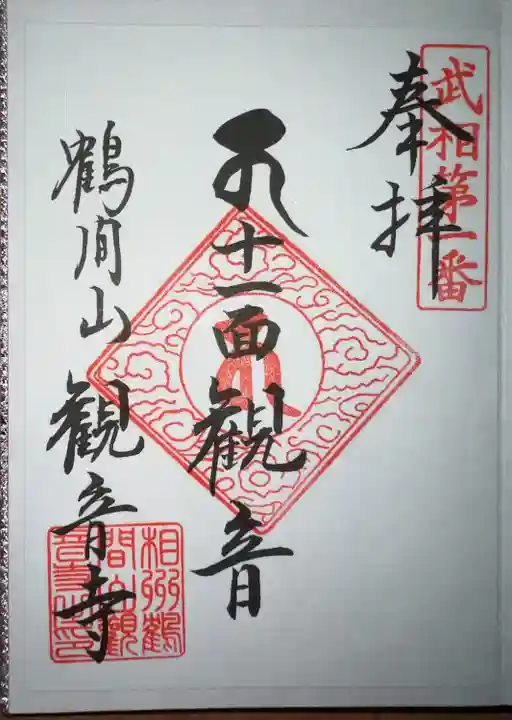 武相第一番
奉拝
十一面観音
鶴間山観音寺
相州鶴
間山観
音寺之印